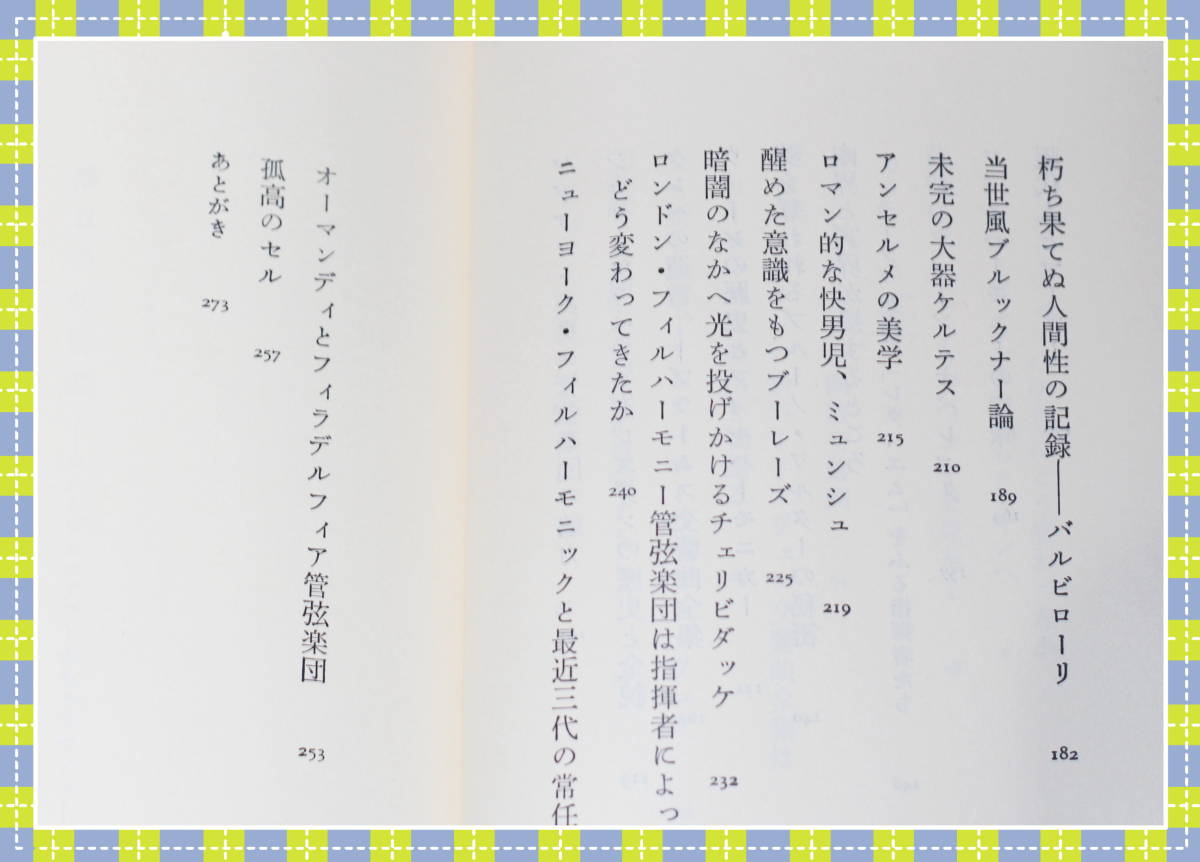 朽ち果てぬ人間性の記録――バルビローリ 182
当世風ブルックナー論 189
未完の大器ケルテス 210
アンセルメの美学 215
ロマン的な快男児、ミュンシュ 219
醒めた意識をもつブーレーズ 225
暗闇のなかへ光を投げかけるチェリビダッケ 232
ロンドン・フィルハーモニー管弦楽団は指揮者によっ
どう変わってきたか 240
ニューヨーク・フィルハーモニックと最近三代の常任
オーマンディとフィラデルフィア管弦楽団 253
孤高のセル 257
あとがき 273